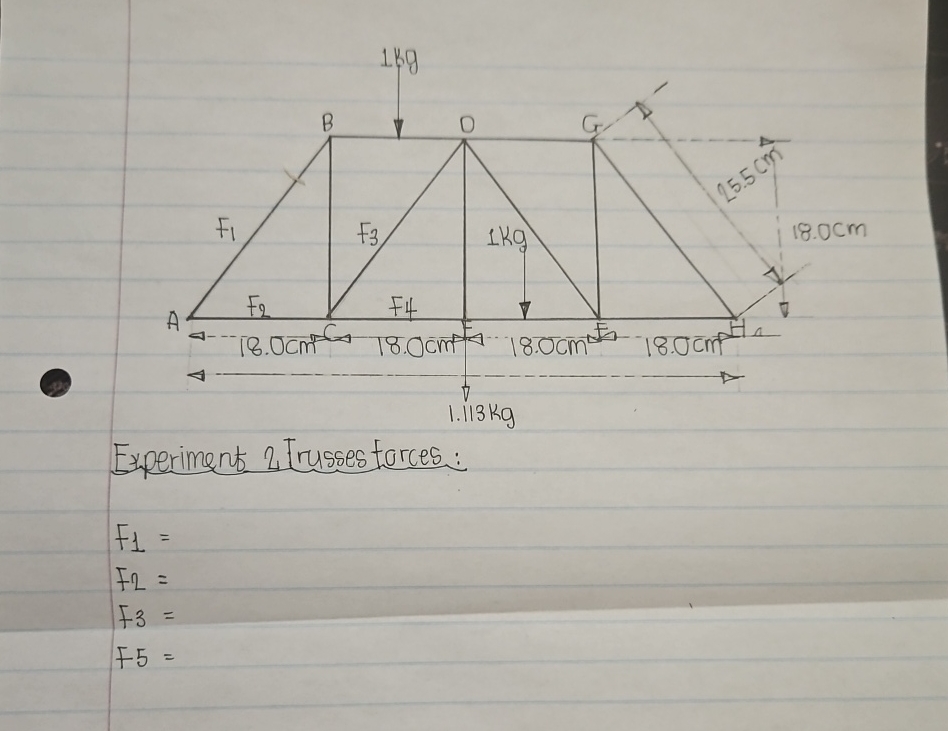 1kg
B D G
25.5cm
F1 F3 1kg 18.0cm
F2 F4
A C E F H
18.0cm 18.0cm 18.0cm 18.0cm
1.113kg
Experiment 2 Trusses forces :
F1 =
F2 =
F3 =
F5 =